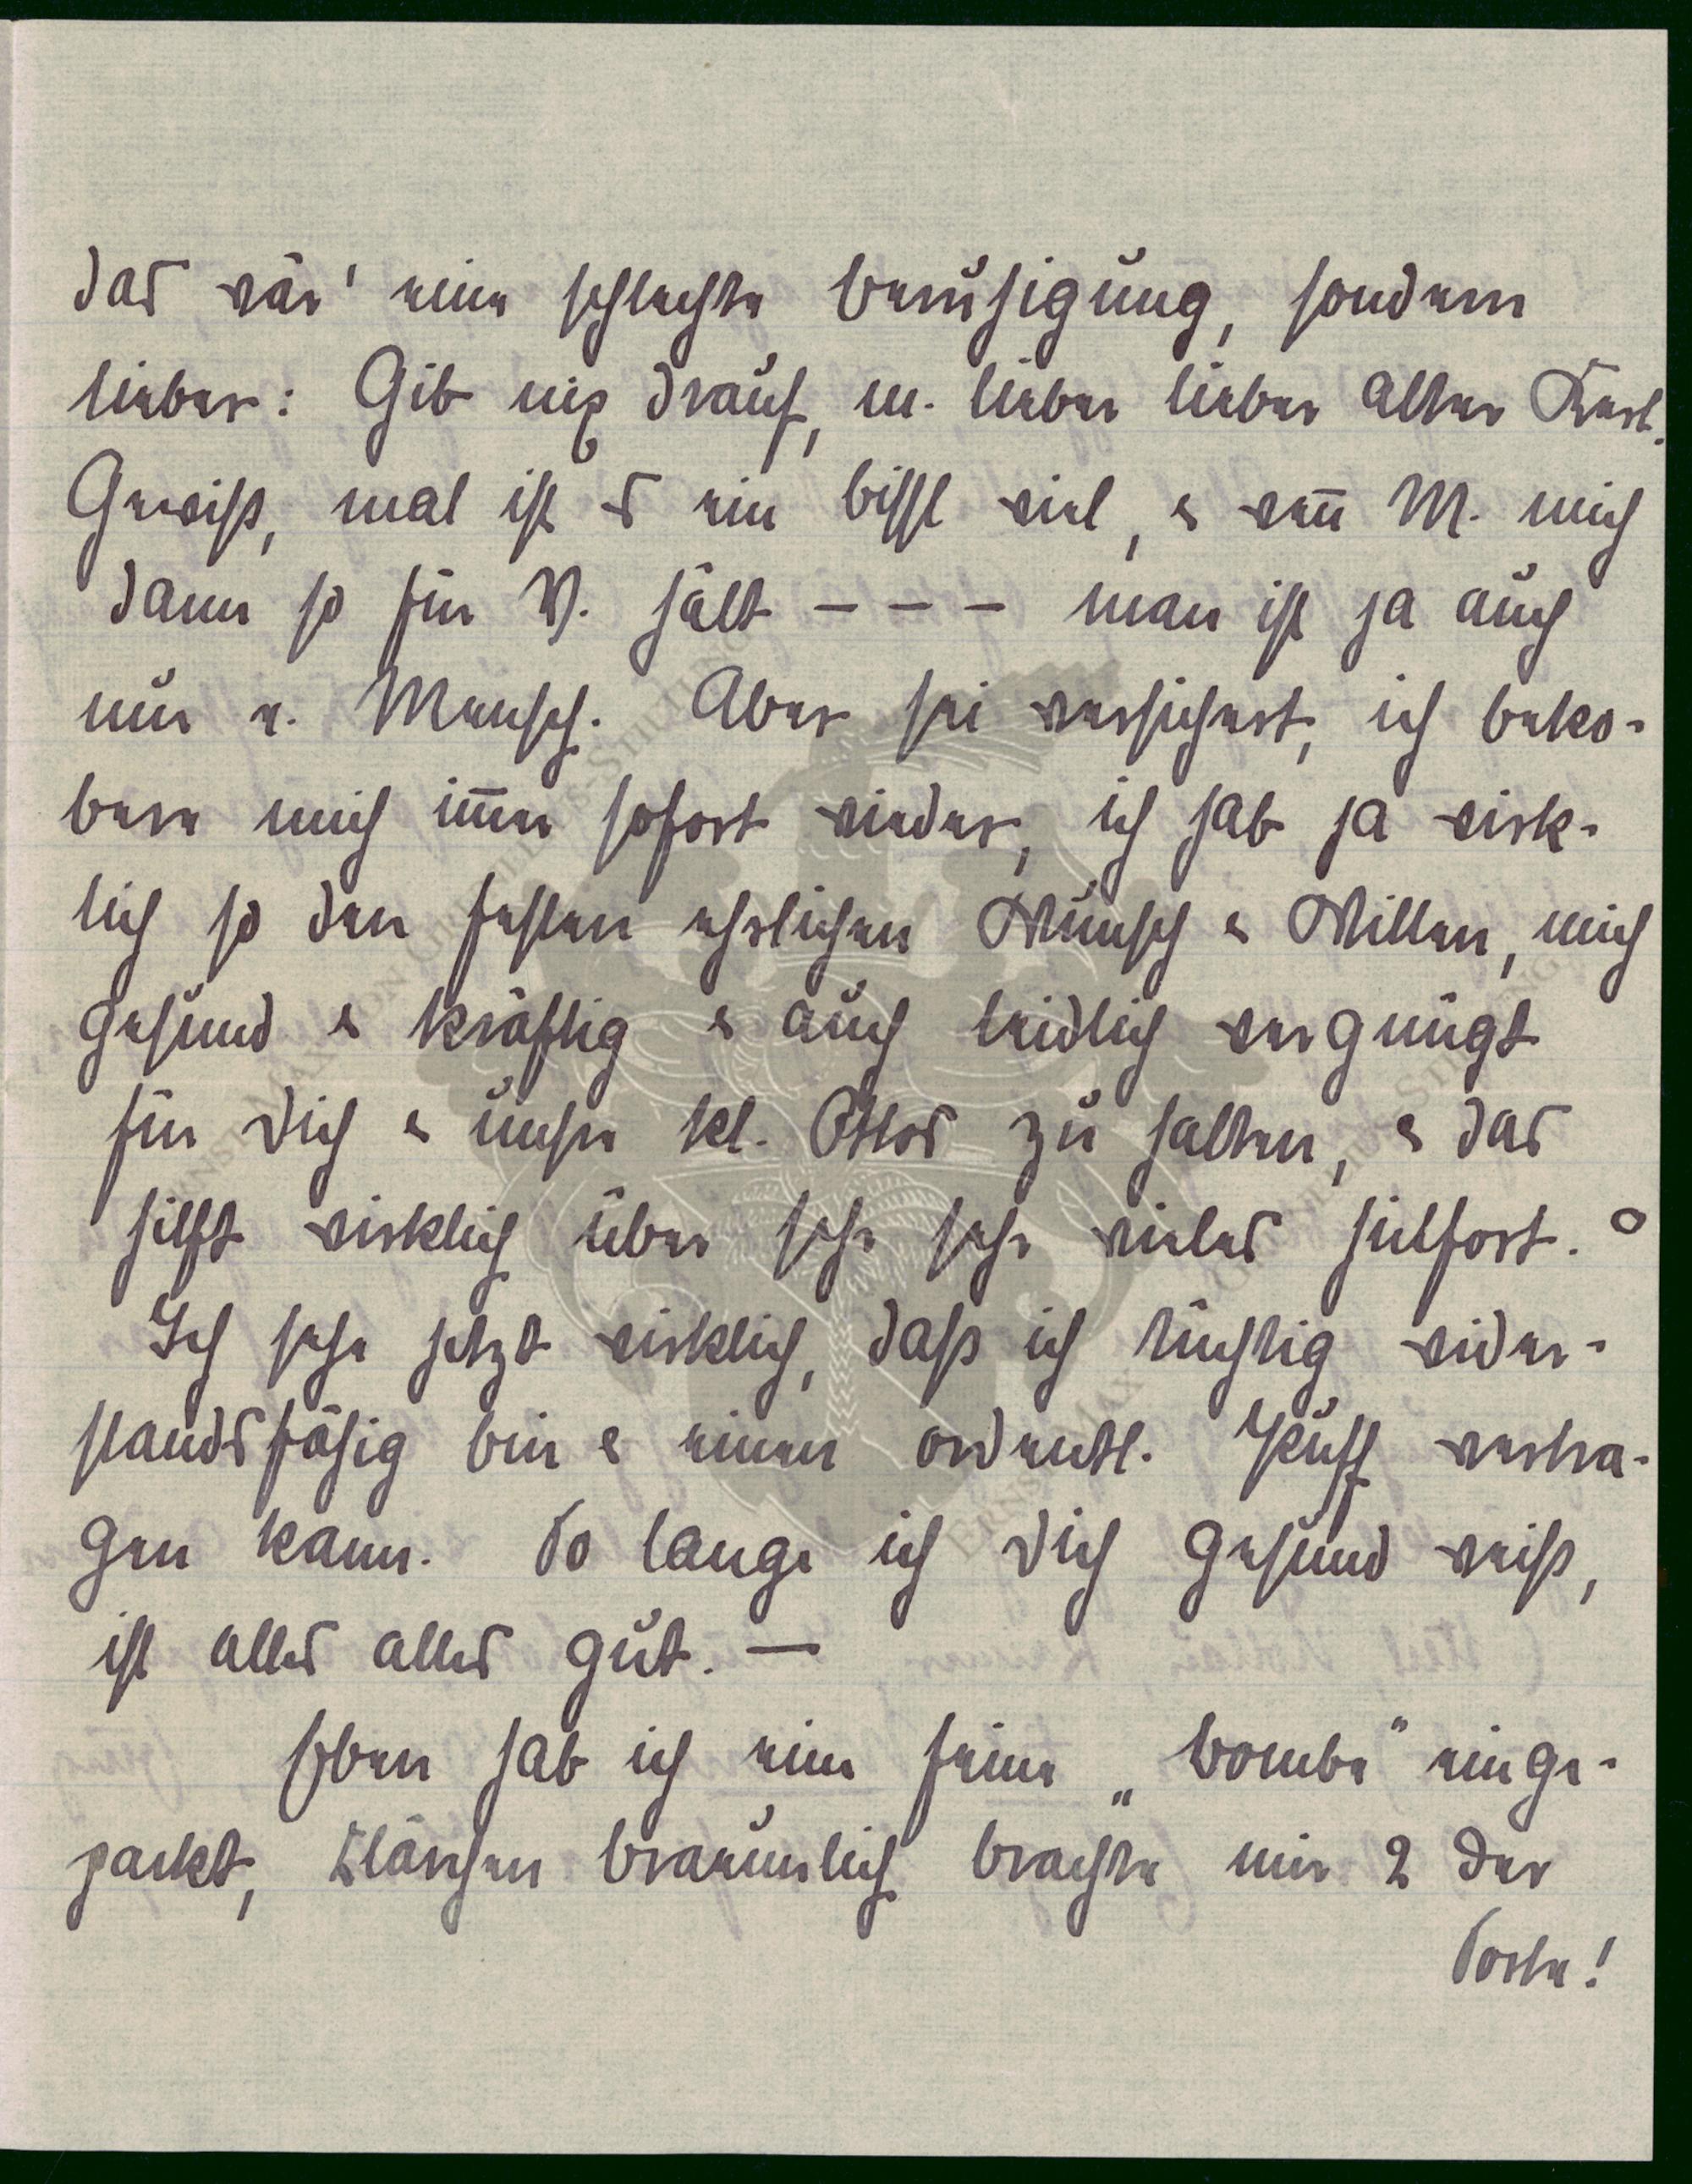 das wär' eine schlechte Beruhigung, sondern
lieber: Gib nix drauf, m. lieber lieber alter Kerl.
Gewiß, mal ist es ein bissl viel, & wen̅ M. mich
dann so für V. hält – – – man ist ja auch
nur e. Mensch. Aber sei versichert, ich beko-
bere mich im̅er sofort wieder, ich hab ja wirk-
lich so den festen ehrlichen Wunsch & Willen, mich
gesund & kräftig & auch leidlich vergnügt
für Dich & unsre kl. Ottos zu halten, & das
hilft wirklich über sehr sehr vieles hinfort.
Ich sehe jetzt wirklich, daß ich tüchtig wider-
standsfähig bin & einen ordentl. Puff vertra-
gen kann. So lange ich Dich gesund weiß,
ist alles alles gut. —
Eben hab ich eine feine „Bombe" einge-
packt, Klärchen bräunlich brachte mir 2 der
Sorte!
ERNST-MAX VON GRIMMELS-STIFTUNG